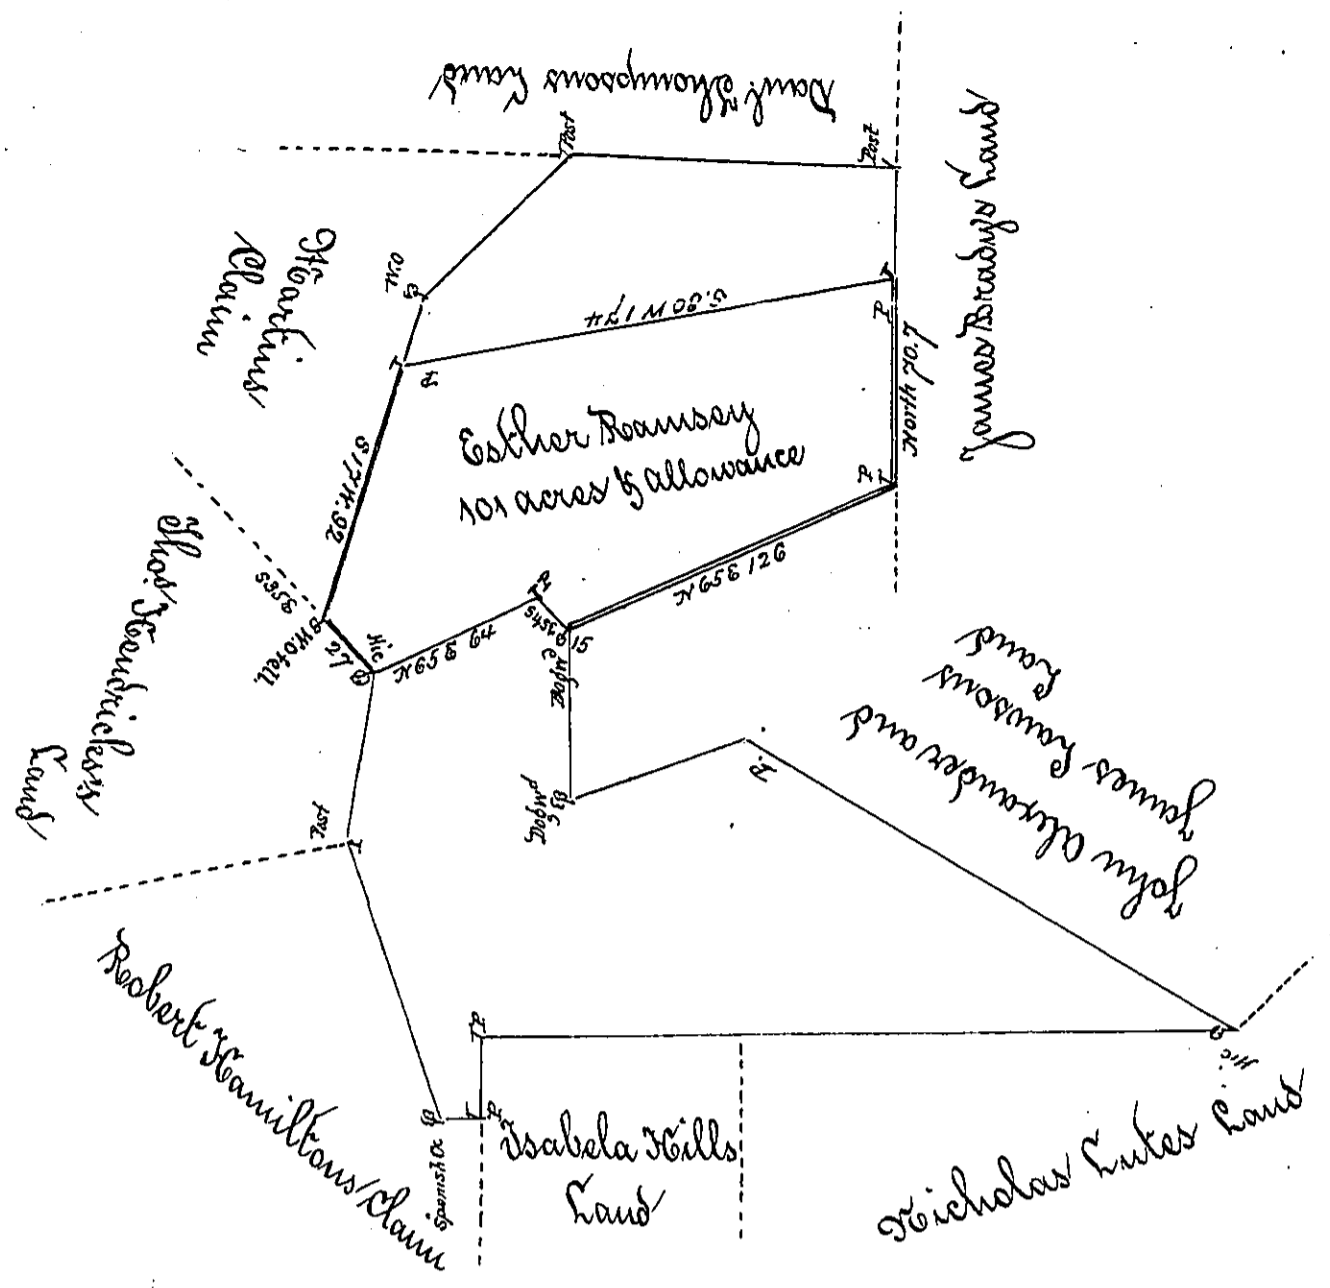 Danl. Thompsons Land
Post
Post
James Bradys Land
W.O
Martins
Claim
S.80 W 174
P
P
North 70.7
Esther Ramsey
101 acres & allowance
S 17 W. 92
P
N 65 E 126
Thos. Hendricks's
Land
S 35 E
W.O fell.
27
Hic
N 65 E 64
P
S 45 E
15
Dogwd
Dogwd
P.
John Alexander and
James Lawsons
Land
Post
Robert Hamiltons Claim
P
P
Spanish O
Isabela Hills
Land
Hic
Nicholas Lutes Land